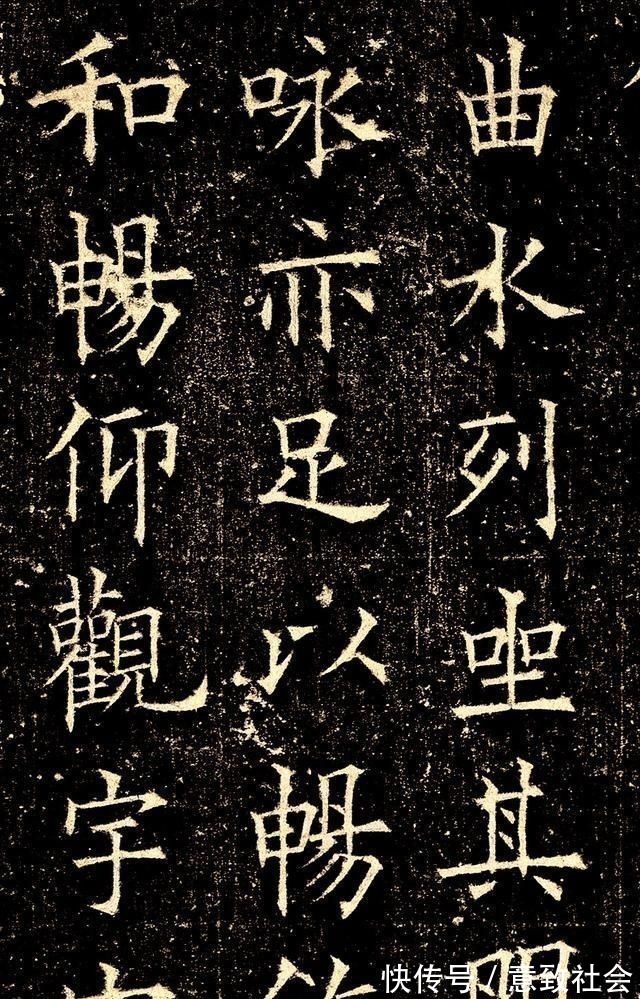 曲水列坐其
咏亦足以暢
和暢仰觀宇
快传号/意致社会